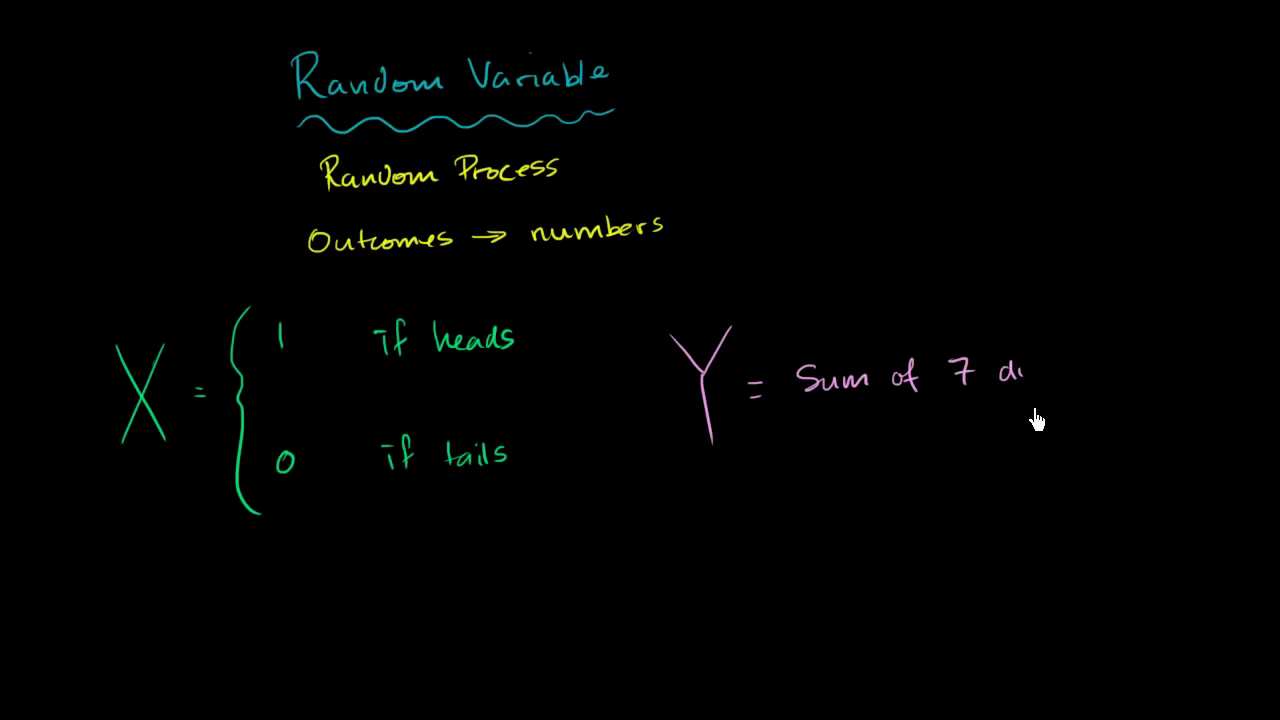 Random Variable
Random Process
Outcomes → numbers
X = { 1 if heads
0 if tails
Y = Sum of 7 di